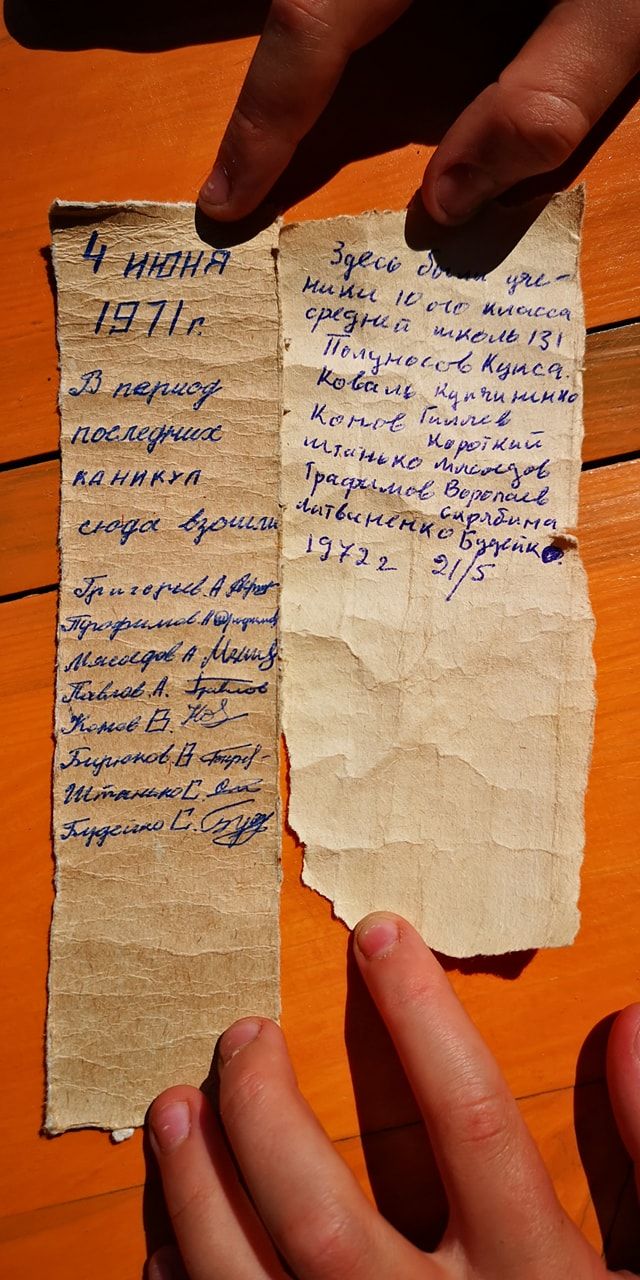 4 июня
1971 г.
В период
последних
каникул
сюда взошли
Григорьев А
Трофимов А
Масоедов А
Павлов А.
Конов В.
Бирюков В
Штанько С.
Будейко С.
Здесь были уче-
ники 10 ого класса
средней школь 131
Полуносов Купса.
Коваль Купчиненко
Конов Гиллев
Короткий
Штанько Масоедов
Трафимов Воропаев
Скрябина
Литвиненко Будейко.
1972 г 21/5